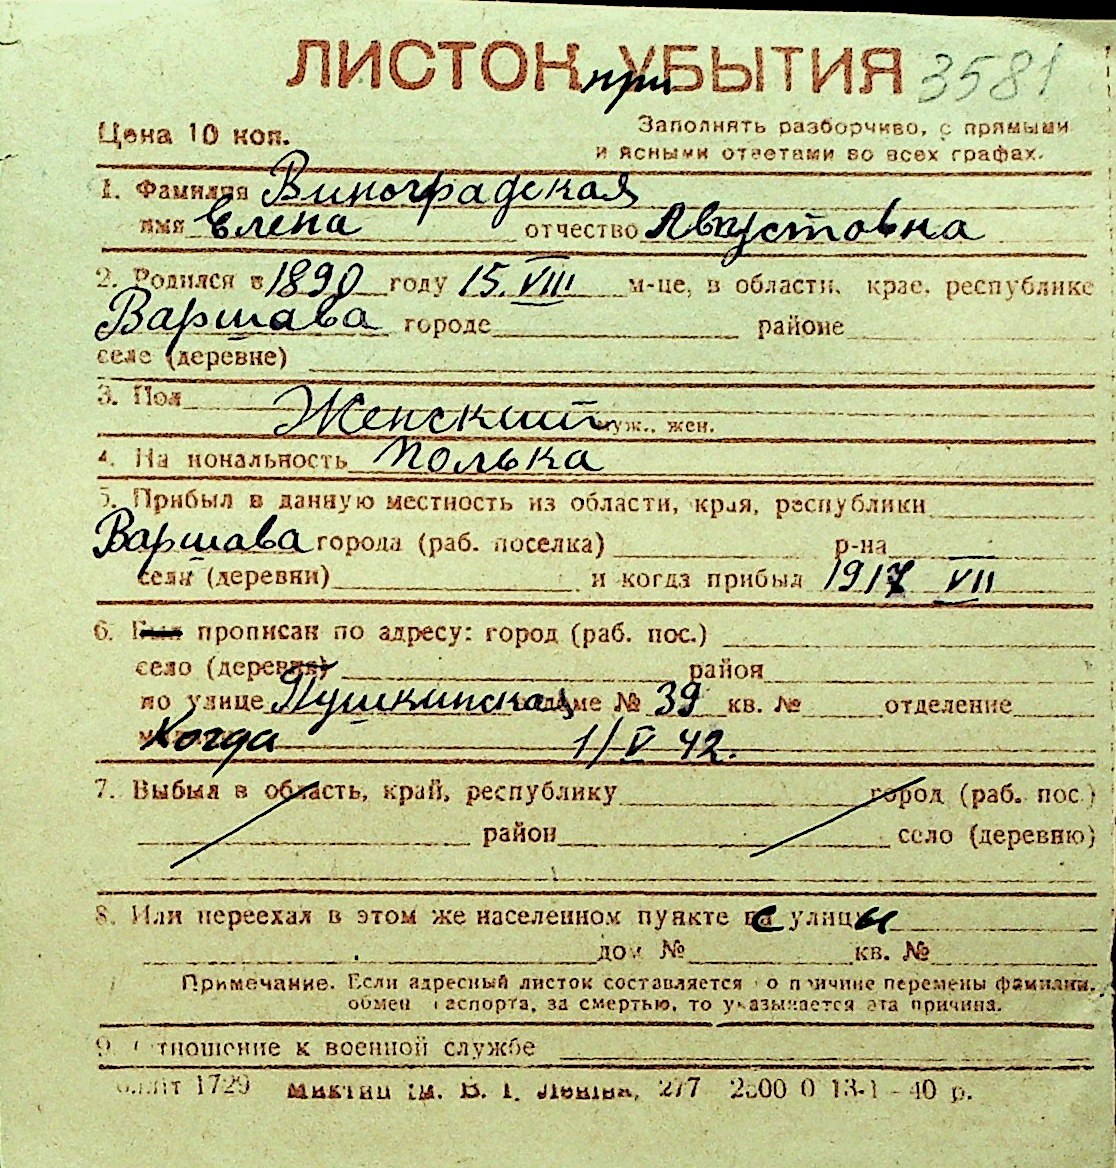 ЛИСТОК при УБЫТИЯ 3581
Цена 10 коп.
Заполнять разборчиво, с прямыми
и ясными ответами во всех графах.
1. Фамилия Виноградская
имя Елена отчество Августовна
2. Родился в 1890 году 15. VIII м-це, в области, крае, республике
Варшава городе районе
селе (деревне)
3. Пол Женский муж., жен.
4. На иональность Полька
5. Прибыл в данную местность из области, края, республики
Варшава города (раб. поселка) р-на
села (деревни) и когда прибыл 1917 VII
6. Был прописан по адресу: город (раб. пос.)
село (деревня) район
по улице Пушкинская доме № 39 кв. № отделение
Когда 1/V 42.
7. Выбыл в область, край, республику город (раб. пос.)
район село (деревню)
8. Или переехал в этом же населенном пункте с улицы
дом № кв. №
Примечание. Если адресный листок составляется по причине перемены фамилии,
обмен паспорта, за смертью, то указывается эта причина.
9. Отношение к военной службе
1729 им. В. І. Леніна, 277 2500 0 13-1-40 р.